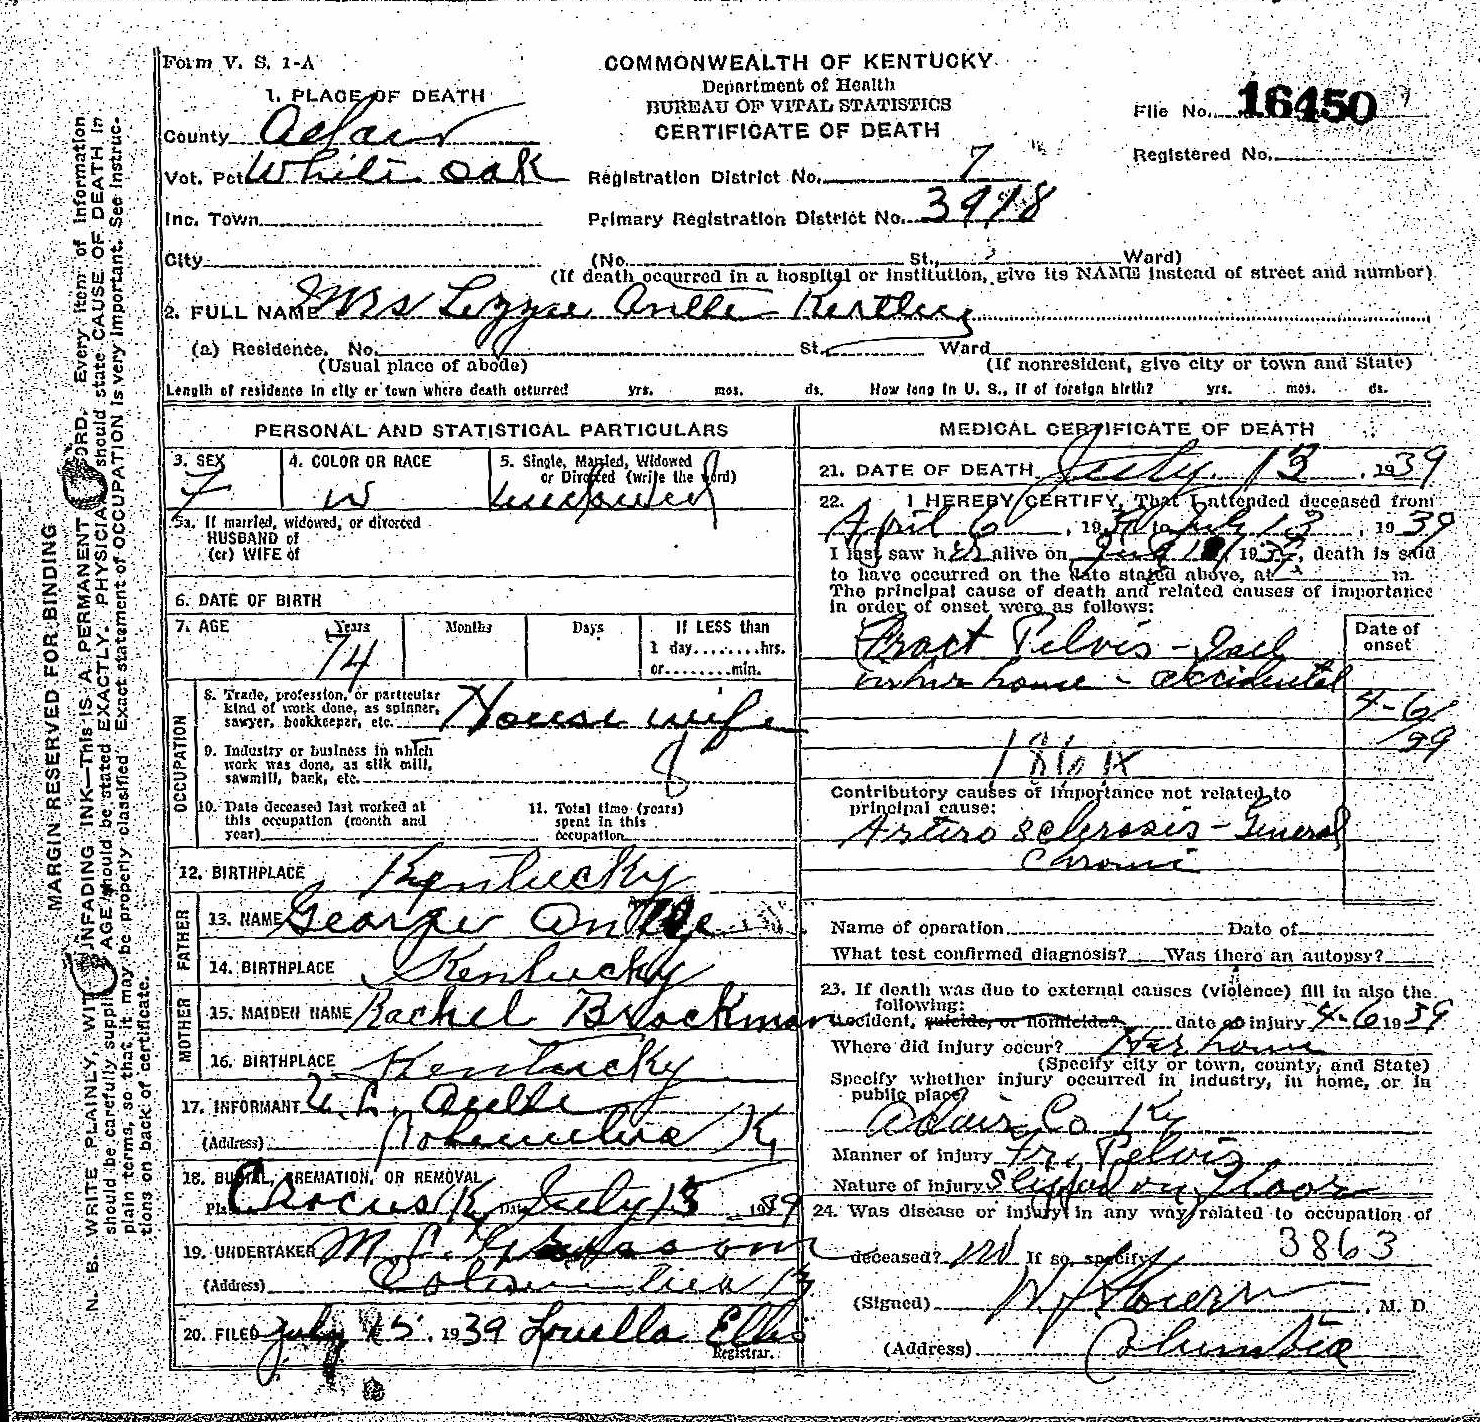 Form V. S. 1-A
COMMONWEALTH OF KENTUCKY
Department of Health
BUREAU OF VITAL STATISTICS
CERTIFICATE OF DEATH
File No. 16450
Registered No.
1. PLACE OF DEATH
County Adair
Vot. Pct. White Oak
Inc. Town
City
Registration District No. 7
Primary Registration District No. 3918
(No. St., Ward)
(If death occurred in a hospital or institution, give its NAME instead of street and number)
2. FULL NAME Mrs Lizzie Antle Kertley
(a) Residence, No. St. Ward
(Usual place of abode) (If nonresident, give city or town and State)
Length of residence in city or town where death occurred yrs. mos. ds. How long in U. S., if of foreign birth? yrs. mos. ds.
PERSONAL AND STATISTICAL PARTICULARS
3. SEX
F
4. COLOR OR RACE
W
5. Single, Married, Widowed
or Divorced (write the word)
widowed
5a. If married, widowed, or divorced
HUSBAND of
(or) WIFE of
6. DATE OF BIRTH
7. AGE Years Months Days If LESS than
74
1 day........hrs.
or........min.
OCCUPATION
8. Trade, profession, or particular
kind of work done, as spinner,
sawyer, bookkeeper, etc. House wife
9. Industry or business in which
work was done, as silk mill,
sawmill, bank, etc.
10. Date deceased last worked at
this occupation (month and
year)
11. Total time (years)
spent in this
occupation
12. BIRTHPLACE Kentucky
FATHER
13. NAME George Antle
14. BIRTHPLACE Kentucky
MOTHER
15. MAIDEN NAME Rachel Brockman
16. BIRTHPLACE Kentucky
17. INFORMANT Antle
(Address) Columbia Ky
18. BURIAL, CREMATION, OR REMOVAL
Place Crocus Ky Date July 15 1939
19. UNDERTAKER M. L. Grissom
(Address) Columbia Ky
20. FILED July 15, 1939 Louella Ellis
Registrar.
MEDICAL CERTIFICATE OF DEATH
21. DATE OF DEATH July 13, 1939
22. I HEREBY CERTIFY, That I attended deceased from
April 6, 1939 to July 13, 1939
I last saw her alive on 1939, death is said
to have occurred on the date stated above, at m.
The principal cause of death and related causes of importance
in order of onset were as follows:
Date of
onset
Fract Pelvis - Fall
in her house - accidental
4-6/
39
186
Contributory causes of importance not related to
principal cause:
Arterio sclerosis - General
Chronic
Name of operation Date of
What test confirmed diagnosis? Was there an autopsy?
23. If death was due to external causes (violence) fill in also the
following:
Accident, suicide, or homicide? date of injury 4-6 1939
Where did injury occur? Her home
(Specify city or town, county, and State)
Specify whether injury occurred in industry, in home, or in
public place?
Adair Co Ky
Manner of injury Fr. Pelvis
Nature of injury Slipped on Floor
24. Was disease or injury in any way related to occupation of
deceased? no If so, specify 3863
(Signed) M. D.
(Address) Columbia
MARGIN RESERVED FOR BINDING
N. B. WRITE PLAINLY, WITH UNFADING INK—THIS IS A PERMANENT RECORD. Every item of information
should be carefully supplied. AGE should be stated EXACTLY. PHYSICIANS should state CAUSE OF DEATH in
plain terms, so that it may be properly classified. Exact statement of OCCUPATION is very important. See instruc-
tions on back of certificate.